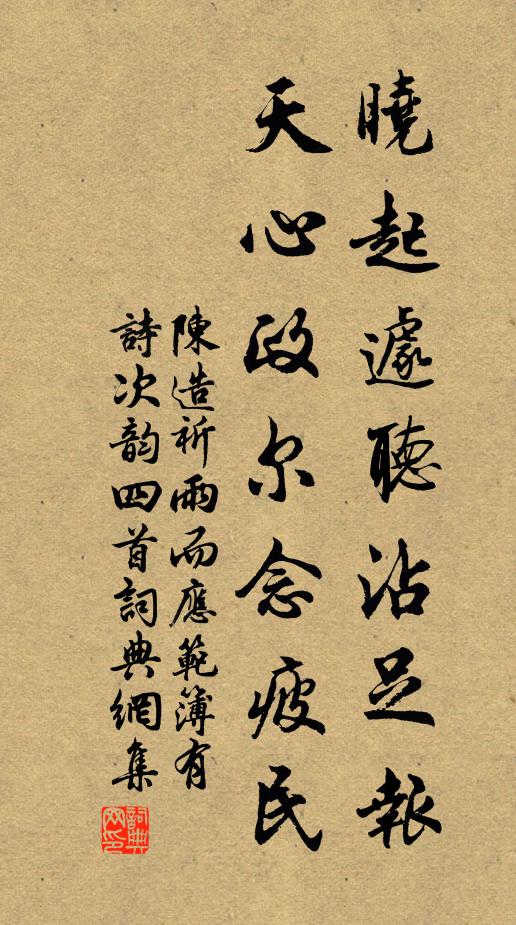 曉起遽聽沾足報
天心政尔念疲民
陳造祈雨而應範簿有
詩次韵四首詞典網集
詞典网印